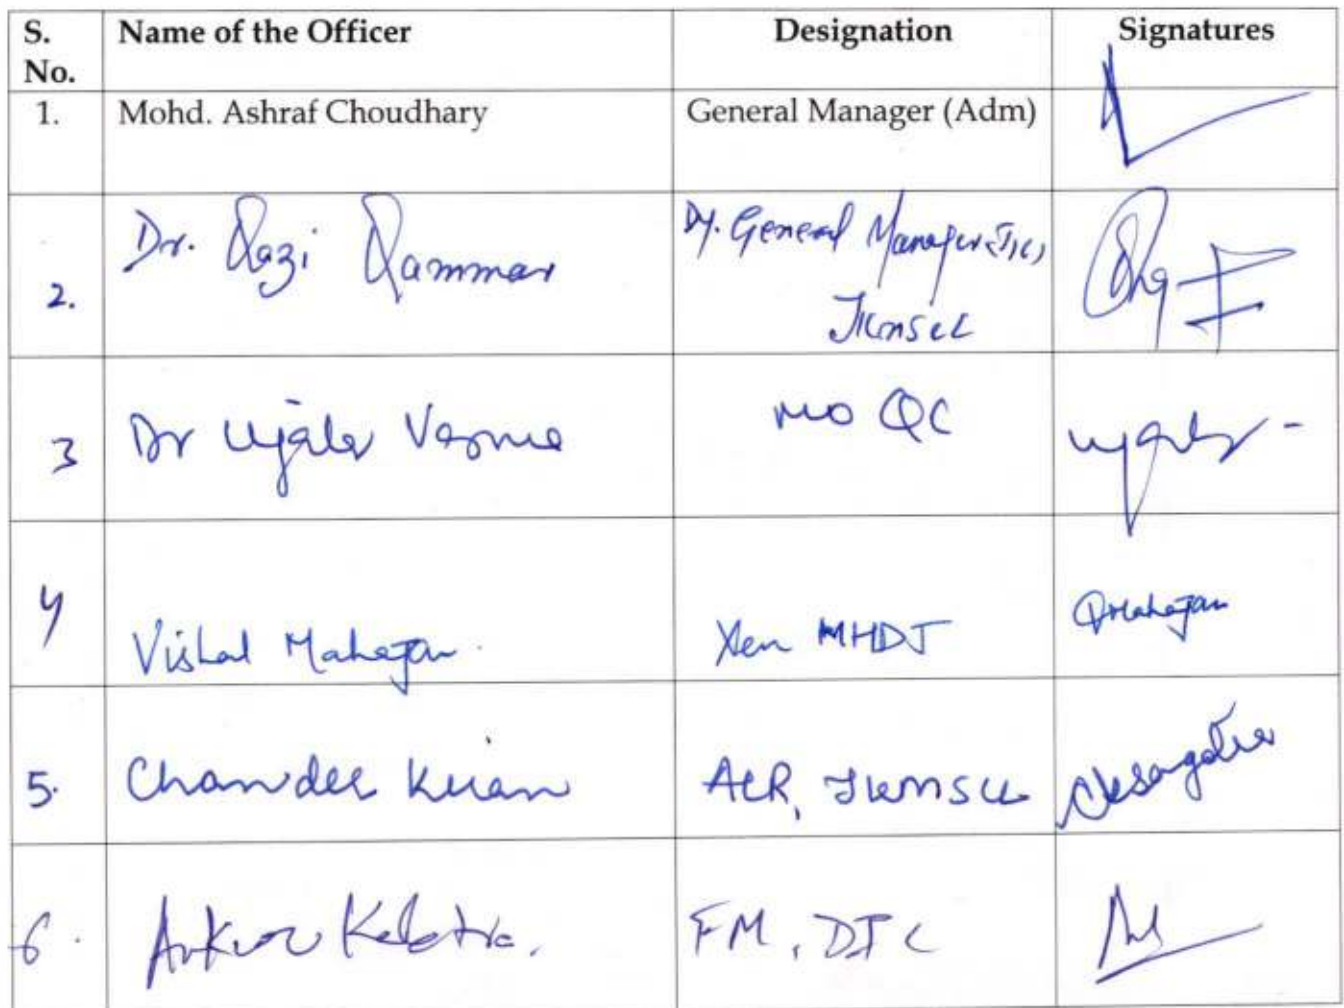 S. No. Name of the Officer Designation Signatures
1. Mohd. Ashraf Choudhary General Manager (Adm)
2. Dr. Qazi Qammar Dy. General Manager
JKMSCL
3 Dr Ujala Verma MO QC
4 Vishal Mahajan. Xen MHDJ Mahajan
5. Chander Kiran ACR, JKMSCL
6. Ankur FM,